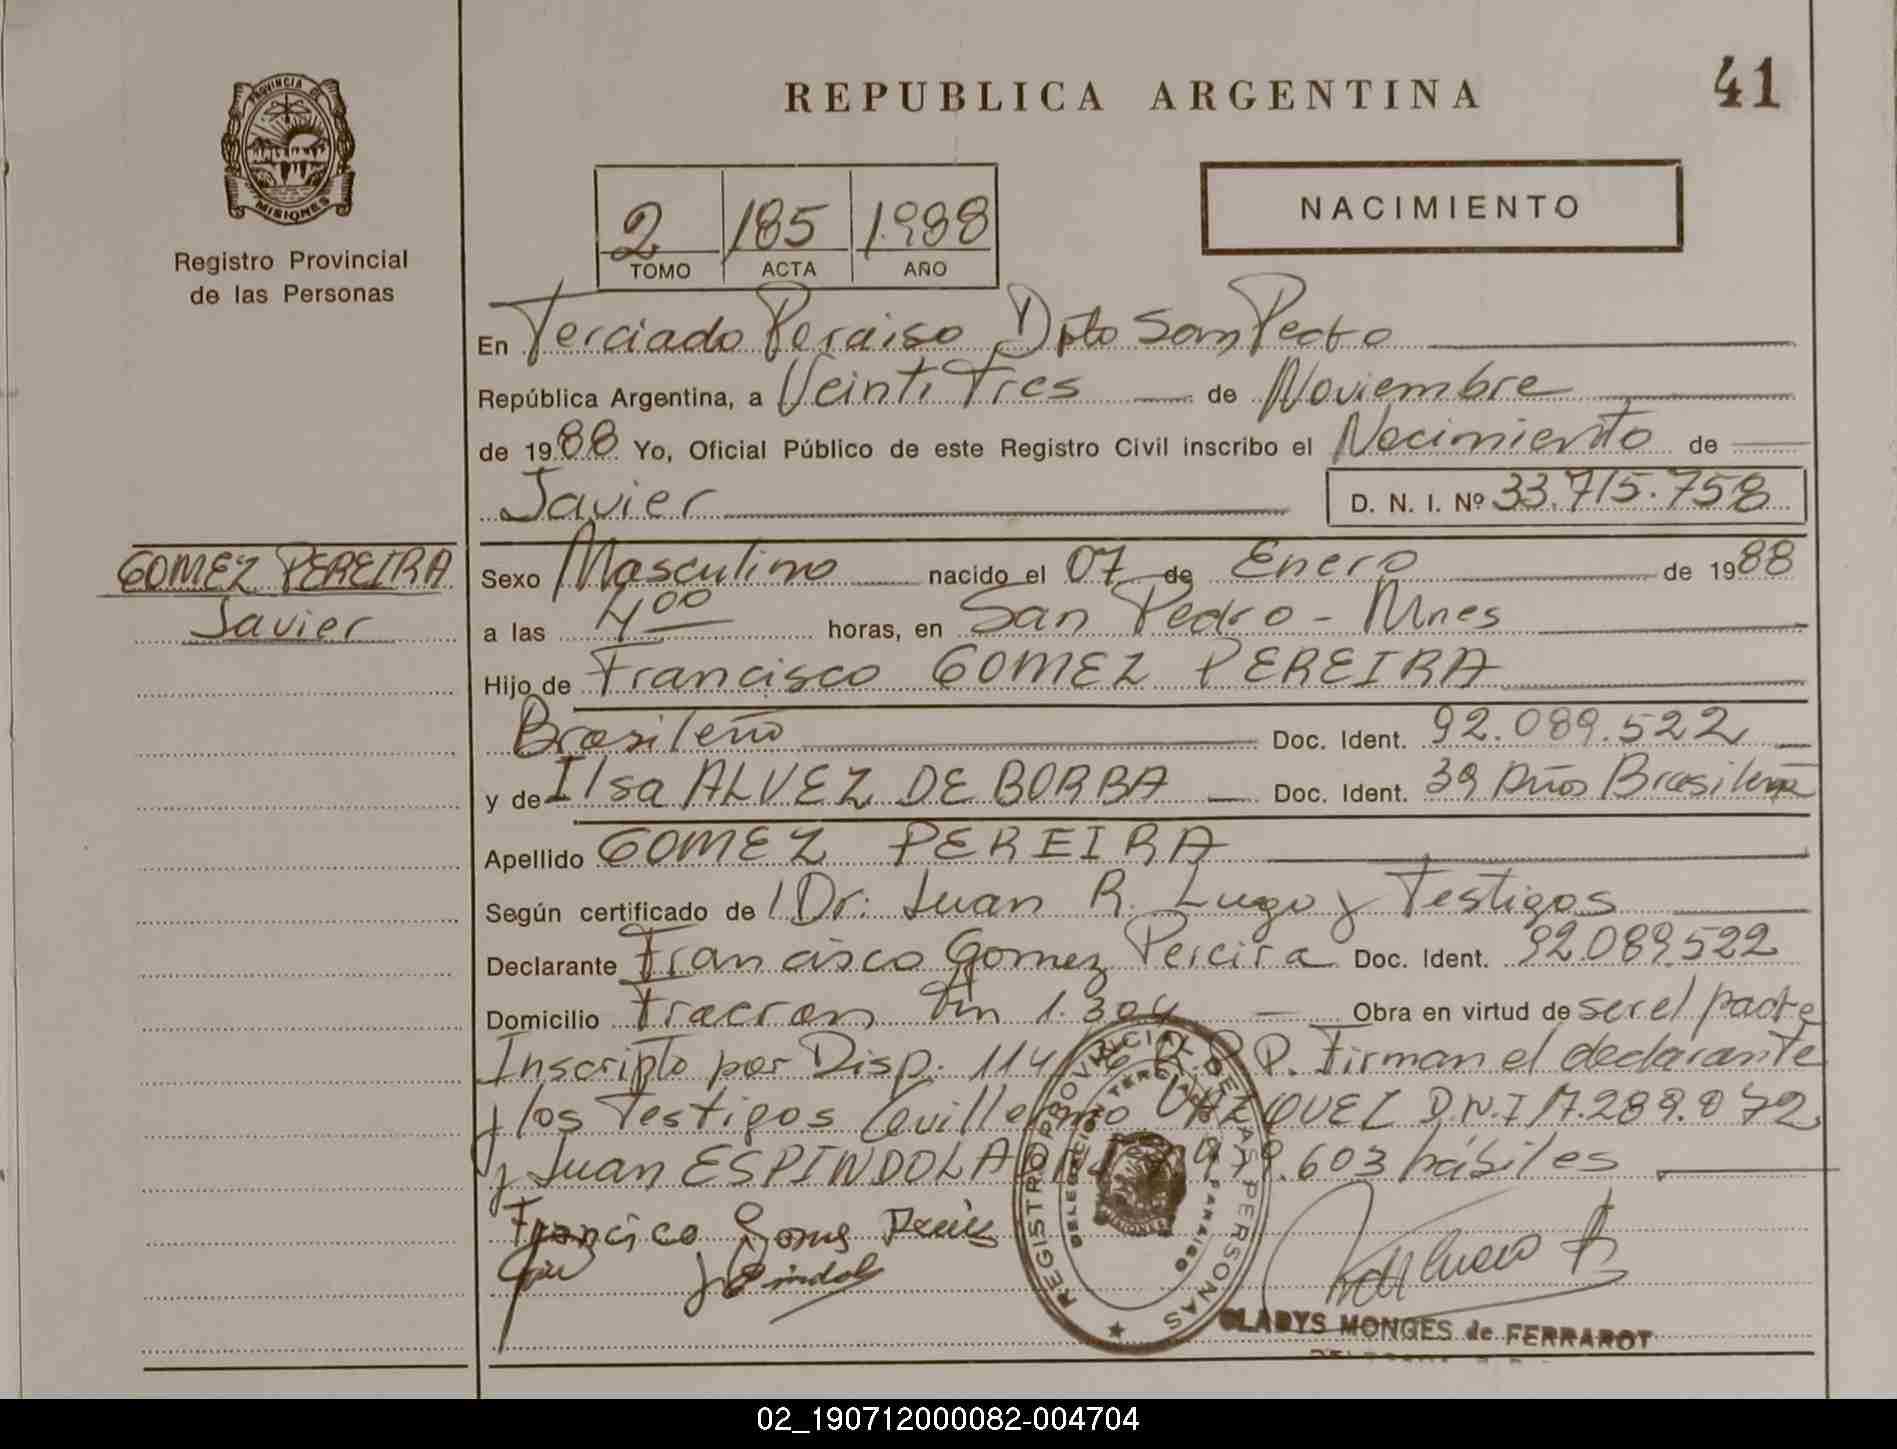 REPUBLICA ARGENTINA
41
PROVINCIA DE
MISIONES
Registro Provincial
de las Personas
2 185 1.988
TOMO ACTA AÑO
NACIMIENTO
En Terciado Paraiso Dpto San Pedro
República Argentina, a Veinti Tres de Noviembre
de 1988 Yo, Oficial Público de este Registro Civil inscribo el Nacimiento de
Javier D. N. I. Nº 33.715.758
GOMEZ PEREIRA
Javier
Sexo Masculino nacido el 07 de Enero de 1988
a las 4 00 horas, en San Pedro - Mnes
Hijo de Francisco GOMEZ PEREIRA
Brasileño Doc. Ident. 92.089.522
y de Ilsa ALVEZ DE BORBA Doc. Ident. 39 Años Brasileña
Apellido GOMEZ PEREIRA
Según certificado de Dr: Juan R. Lugo y Testigos
Declarante Francisco Gomez Pereira Doc. Ident. 92.089.522
Domicilio Fracran Km 1.304 Obra en virtud de ser el padre
Inscripto por Disp. 114 R.P.P. Firman el declarante
y los Testigos Guillermo VAZQUEZ D.N.I 17.289.072
y Juan ESPINDOLA 603 hábiles
REGISTRO PROVINCIAL DE LAS PERSONAS
DELEGACION TERCIADO PARAISO
MISIONES
GLADYS MONGES de FERRAROT
02_190712000082-004704